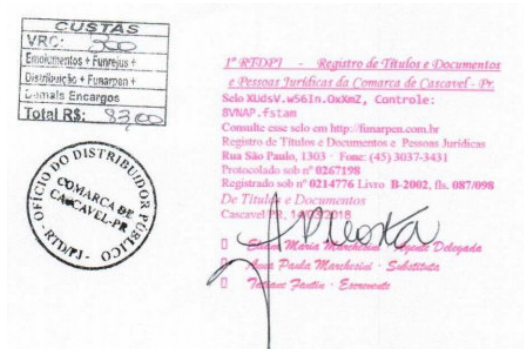 CUSTAS
VRC: 300
Emolumentos + Funrejus +
Distribuição + Funarpen +
Demais Encargos
Total R$: 83,00
OFÍCIO DO DISTRIBUIDOR PÚBLICO
COMARCA DE
CASCAVEL-PR
RTD/PJ
1º RTDPJ - Registro de Títulos e Documentos
e Pessoas Jurídicas da Comarca de Cascavel - Pr.
Selo XUdsV.w56In.OwXmZ, Controle:
8VNAP.fstan
Consulte esse selo em http://funarpen.com.br
Registro de Títulos e Documentos e Pessoas Jurídicas
Rua São Paulo, 1303 · Fone: (45) 3037-3431
Protocolado sob nº 0267198
Registrado sob nº 0214776 Livro B-2002, fls. 087/098
De Títulos e Documentos
Cascavel PR, 14/03/2018
Maria Marchesini · Agente Delegada
Anna Paula Marchesini · Substituta
Tatiane Fantin · Escrevente